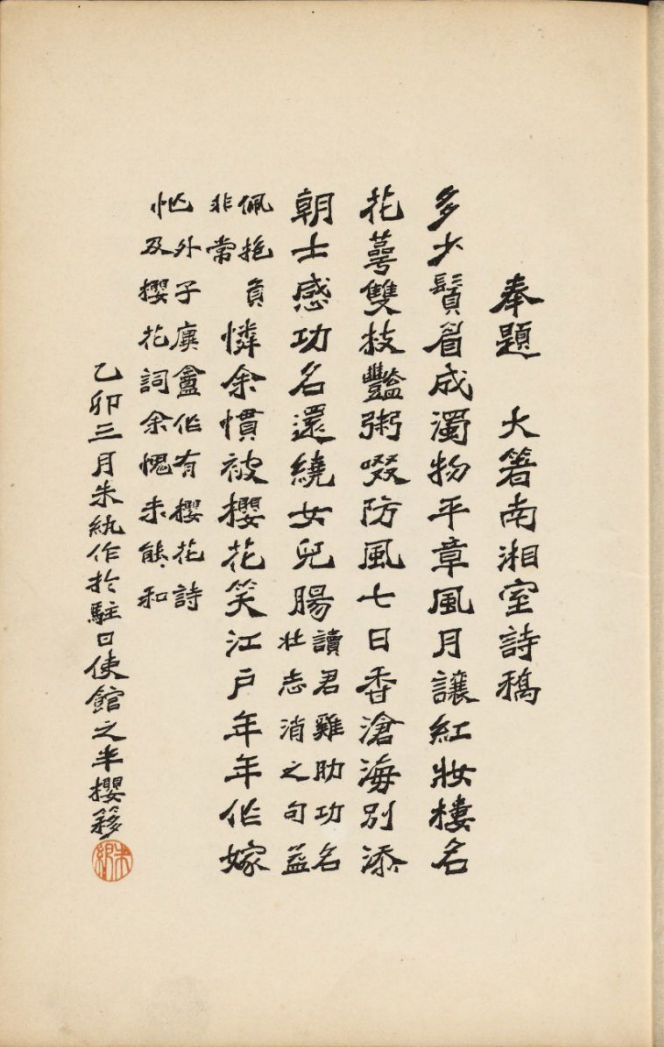 奉題 大箸南湘室詩稿
多少鬚眉成濁物平章風月讓紅妝樓名
花萼雙枝豔粥啜防風七日香滄海別添
朝士感功名還繞女兒腸
讀君雞肋功名
壯志消之句益
佩抱負
非常
憐余慣被櫻花笑江戶年年作嫁
忙
外子庚盦作有櫻花詩
及櫻花詞余愧未能和
乙卯三月朱紈作於駐日使館之半櫻簃